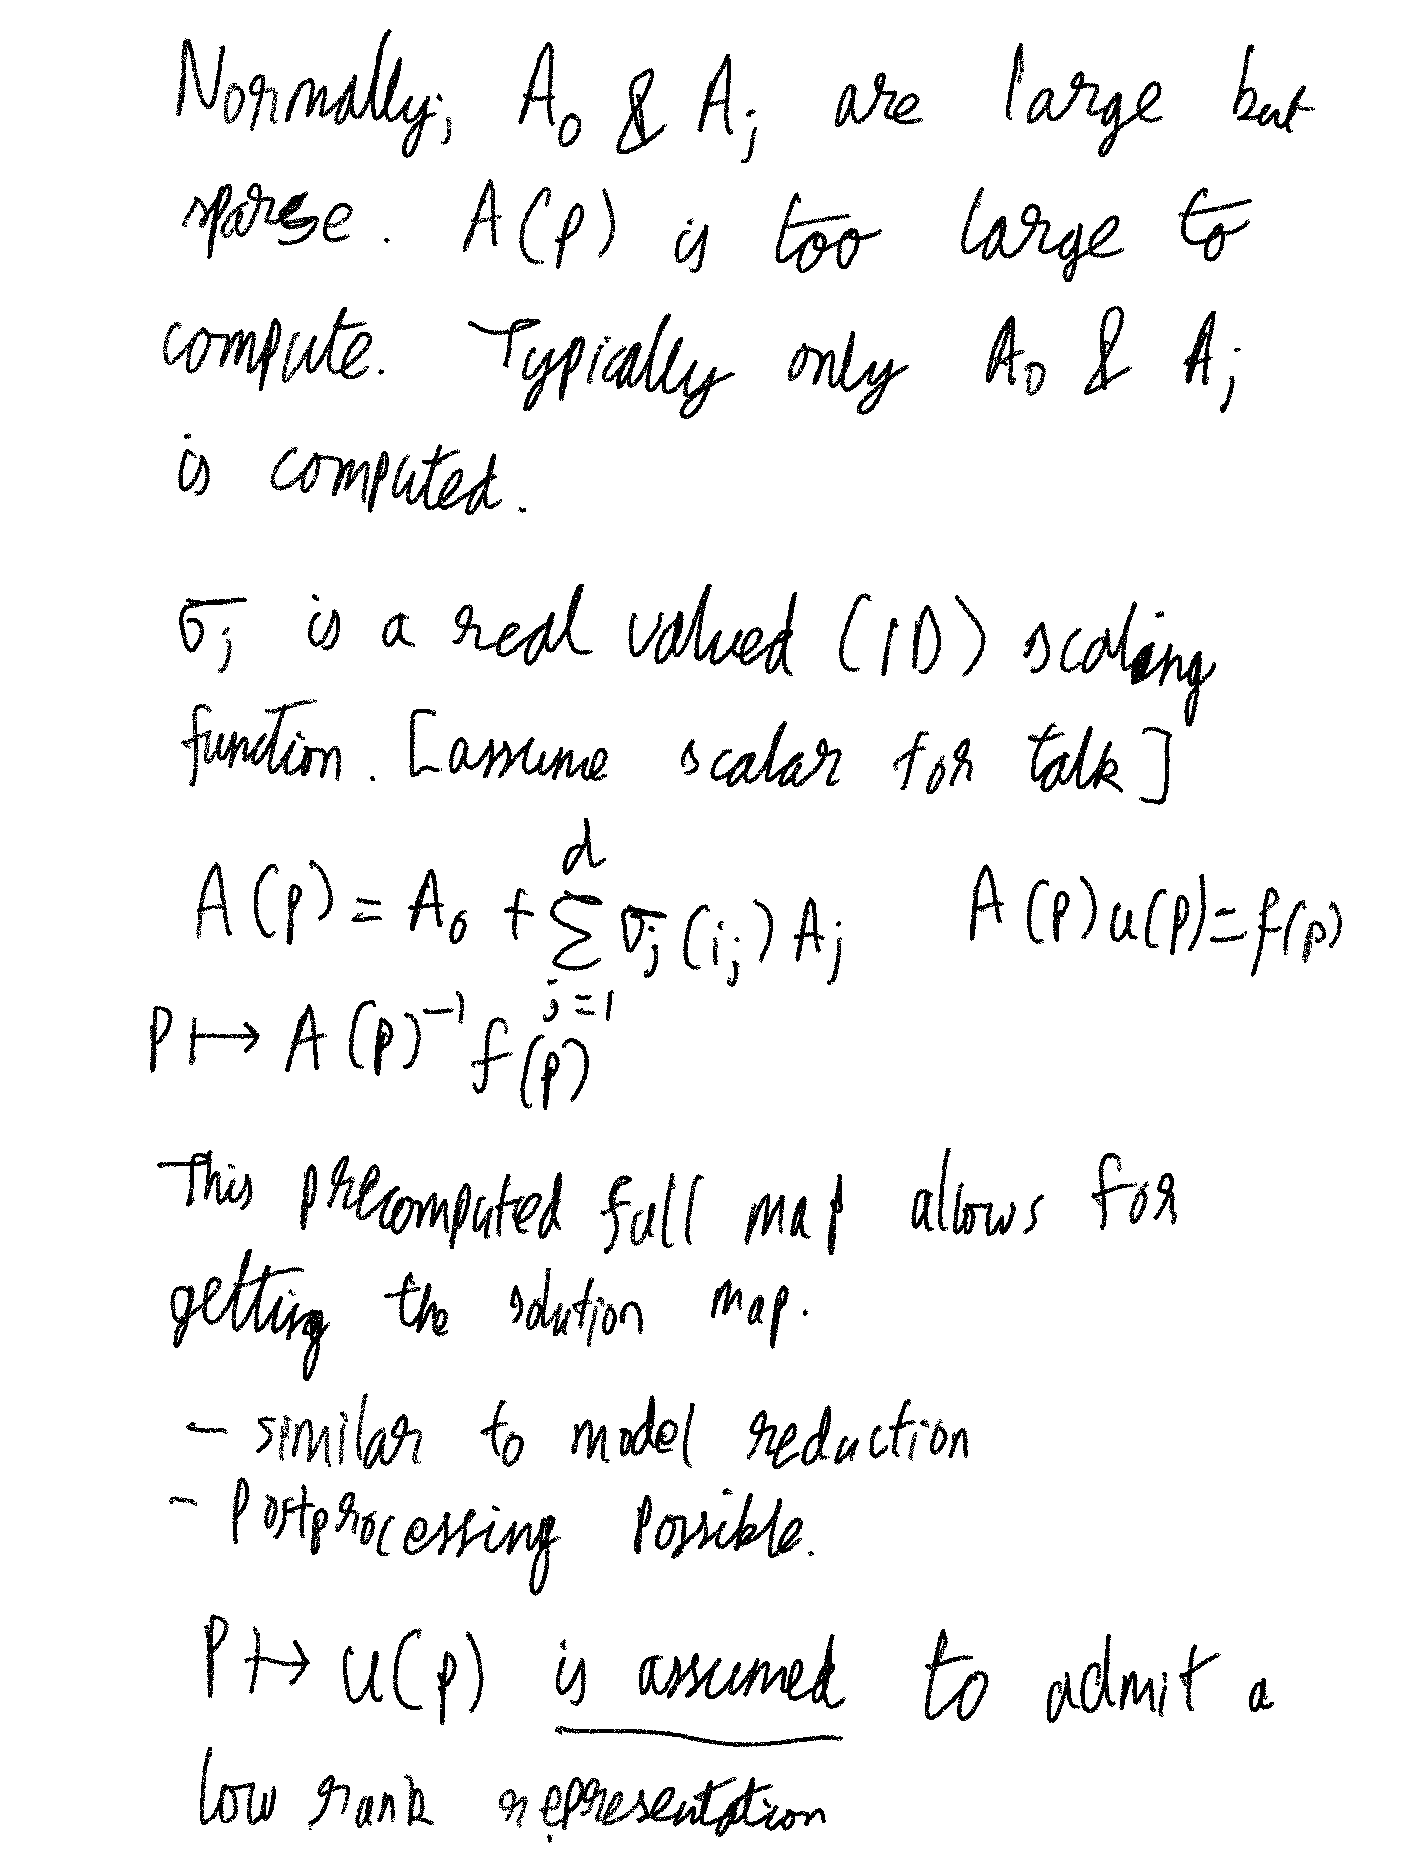 Normally, A₀ & Aⱼ are large but
sparse. A(p) is too large to
compute. Typically only A₀ & Aⱼ
is computed.
σⱼ is a real valued (1D) scaling
function. [assume scalar for talk]
A(p) = A₀ + ∑ⱼ₌₁ᵈ σⱼ(iⱼ) Aⱼ A(p)u(p)=f(p)
P ↦ A(p)⁻¹ f(p)
This precomputed full map allows for
getting the solution map.
- similar to model reduction
- Postprocessing Possible.
P ↦ u(p) is assumed to admit a
low rank representation